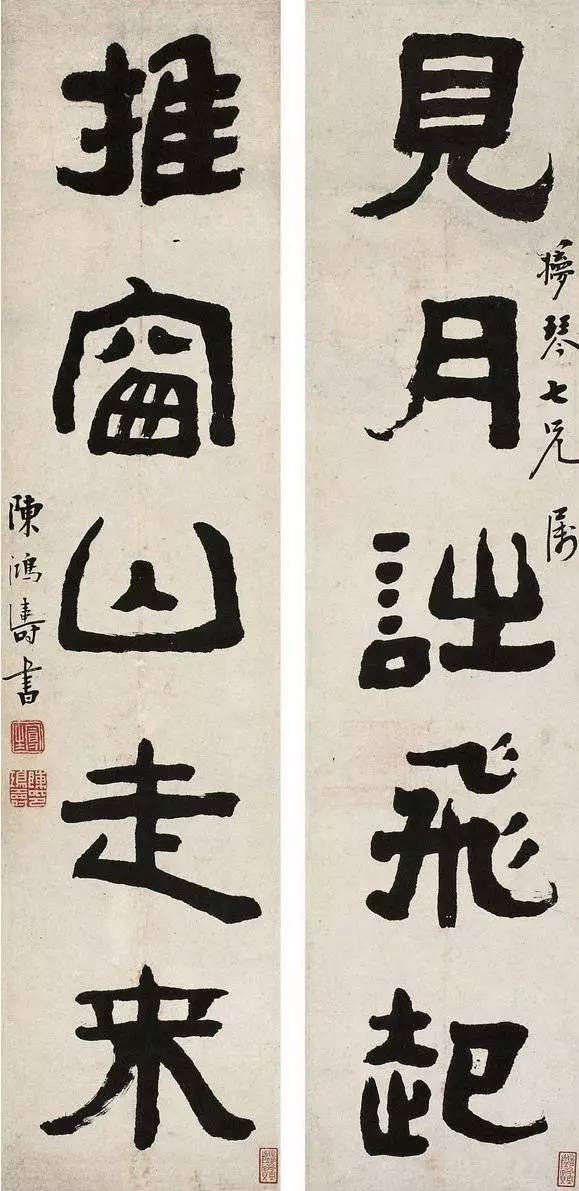 見月飛起
夢琴七兄屬
推窗山走來
陳鴻壽書